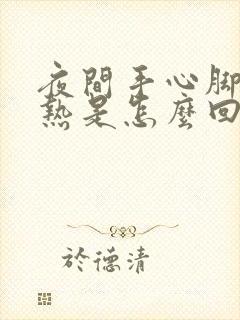 夜間手心腳
熱是怎麼回
於德清